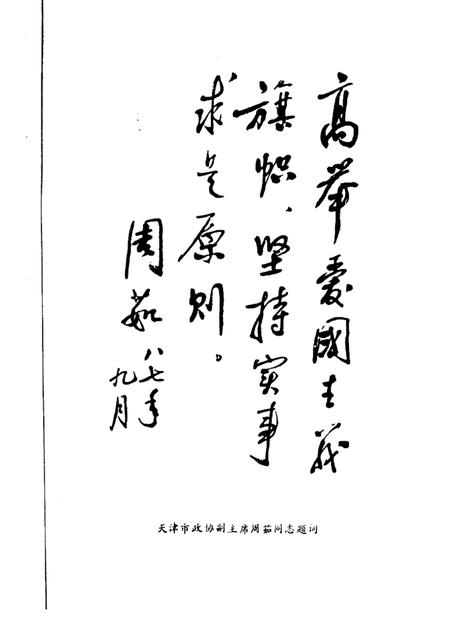 高举爱國主义
旗帜、坚持实事
求是原则。
周茹
八七年
九月
天津市政协副主席周茹同志题词